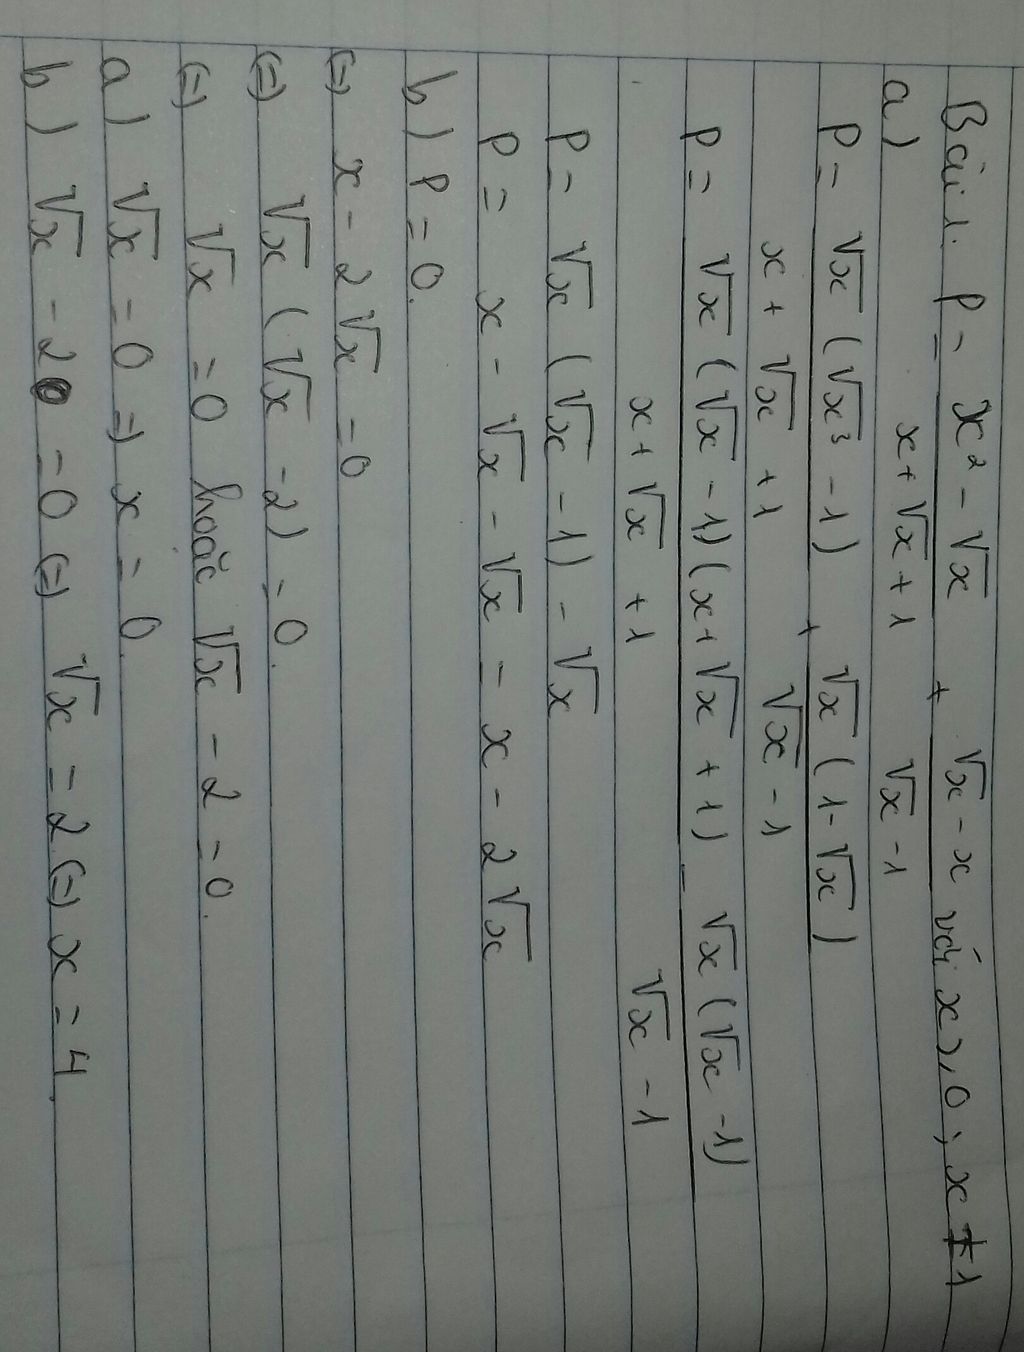 Bài 1. P = x² - √x / x + √x + 1 + √x - x / √x - 1 với x ≥ 0; x ≠ 1
a)
P = √x (√x³ - 1) / x + √x + 1 + √x (1 - √x) / √x - 1
P = √x (√x - 1) (x + √x + 1) / x + √x + 1 - √x (√x - 1) / √x - 1
P = √x (√x - 1) - √x
P = x - √x - √x = x - 2√x
b) P = 0.
(=) x - 2√x = 0
(=) √x (√x - 2) = 0.
(=) √x = 0 hoặc √x - 2 = 0.
a) √x = 0 =) x = 0.
b) √x - 2 = 0 (=) √x = 2 (=) x = 4.